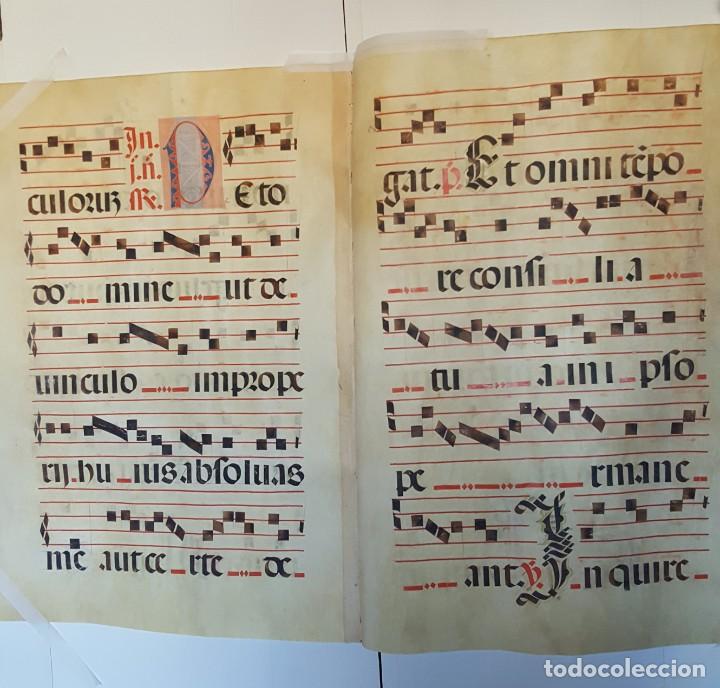 In.
j.n̄.
culoruz R. PEto
do mine ut de
uinculo imprope
rij. hu ius absoluas
me aut ce rte de
gat. p̄. Et omni tēpo
re consi li a
tu a in i pso
pe rmane
ant. V. In quire
todocoleccion